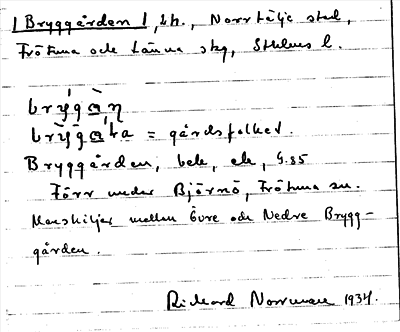 [Bryggården], lh., Norrtälje stad,
Frötuna och Länna skg, Sthlms l.
brýgɑ̀ṇ
brỳgɑ̀ra = gårdsfolket.
Bryggården, beb., ek., G.35
Förr under Björnö, Frötuna sn.
Man skiljer mellan Övre och Nedre Brygg-
gården.
Rickard Norrman 1934.